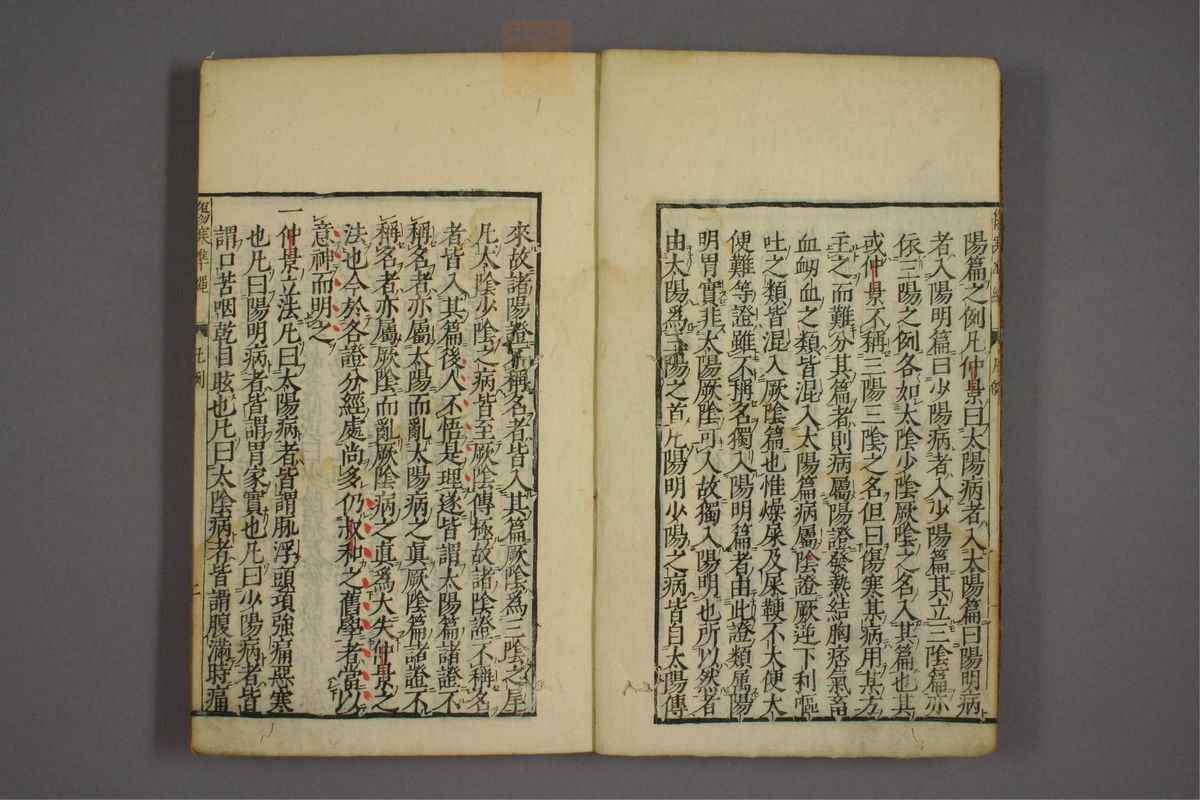 陽篇之例凡仲景曰太陽病者入太陽篇曰陽明病
者入陽明篇曰少陽病者入少陽篇其立三陰篇亦
依三陽之例各如太陰少陰厥陰之名入其篇也其
或仲景不稱三陽三陰之名但曰傷寒某病用某方
主之而難分其篇者則病屬陽證發熱結胸痞氣畜
血衄血之類皆混入太陽篇病屬陰證厥逆下利嘔
吐之類皆混入厥陰篇也惟燥屎及屎鞕不大便大
便難等證雖不稱名獨入陽明篇者由此證類属陽
明胃實非太陽厥陰可入故獨入陽明也所以然者
由太陽爲三陽之首凡陽明少陽之病皆自太陽傳
來故諸陽證不稱名者皆入其篇厥陰爲三陰之尾
凡太陰少陰之病皆至厥陰傳極故諸陰證不稱名
者皆入其篇後人不悟是理遂皆謂太陽篇諸證不
稱名者亦屬太陽而亂太陽病之眞厥陰篇諸證不
稱名者亦屬厥陰而亂厥陰病之眞爲大失仲景之
法也今於各證分經處尚多仍叔和之舊學者當以
意神而明之
一仲景立法凡曰太陽病者皆謂脉浮頭項強痛惡寒
也凡曰陽明病者皆謂胃家實也凡曰少陽病者皆
謂口苦咽乾目眩也凡曰太陰病者皆謂腹滿時痛
傷寒準繩 凡例 二